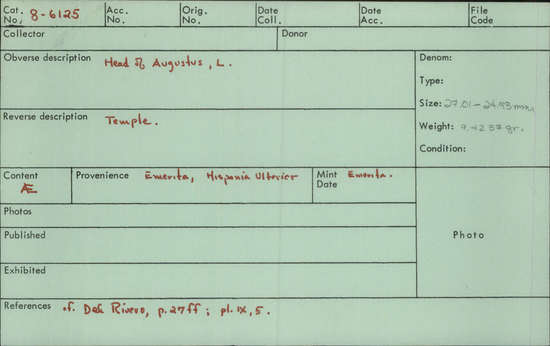 Cat. No. 8-6125 Acc. No. Orig. No. Date Coll. Date Acc. File Code
Collector Donor
Obverse description Head of Augustus, L.
Denom:
Type:
Size: 27.01-24.93mm
Reverse description Temple.
Weight: 9.4237gr.
Condition:
Content Æ Provenience Emerita, Hispania Ulterior Mint Date Emerita.
Photos
Published
Photo
Exhibited
References cf. Del Rivero, p.27ff; pl.IX,5.